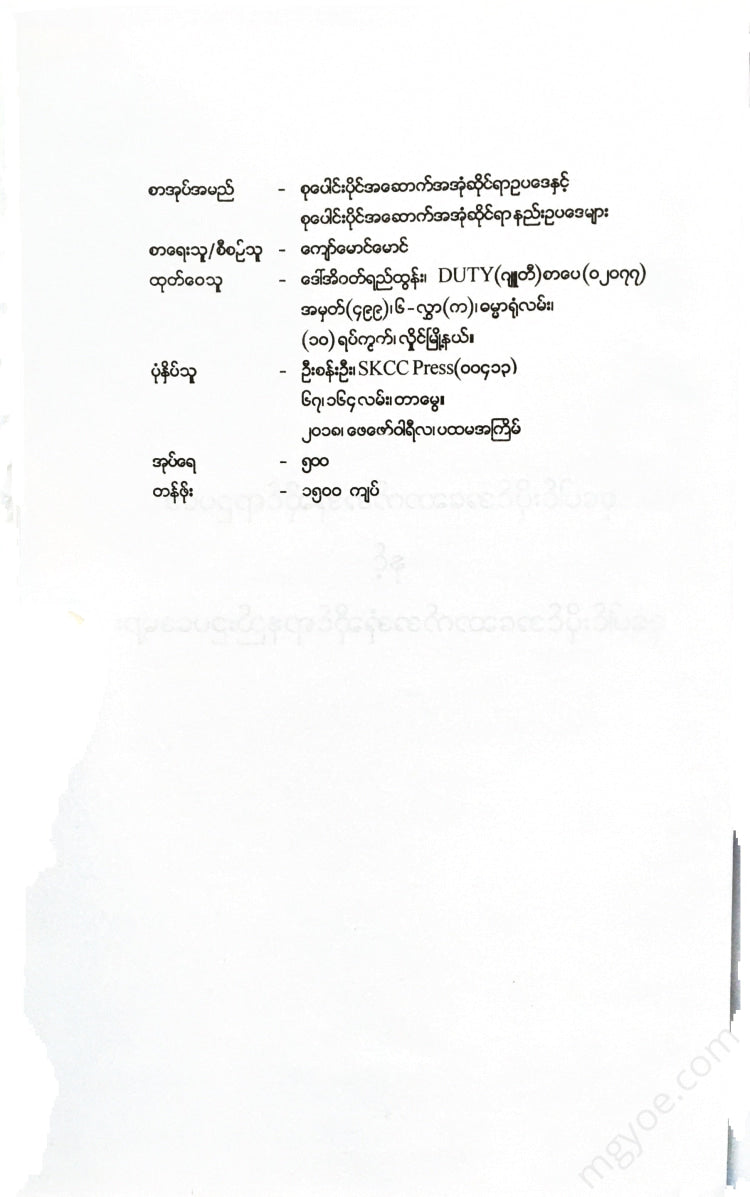 စာအုပ်အမည် - စုပေါင်းပိုင်အဆောက်အအုံဆိုင်ရာဥပဒေနှင့်
စုပေါင်းပိုင်အဆောက်အအုံဆိုင်ရာ နည်းဥပဒေများ
စာရေးသူ/စီစဉ်သူ - ကျော်မောင်မောင်
ထုတ်ဝေသူ - ဒေါ်အိဝတ်ရည်ထွန်း၊ DUTY(ဂျူတီ)စာပေ(၀၂၀၇၇)
အမှတ်(၄၉၉)၊ ၆-လွှာ(က)၊ ဓမ္မာရုံလမ်း၊
(၁၀) ရပ်ကွက်၊ လှိုင်မြို့နယ်။
ပုံနှိပ်သူ - ဦးစန်းဦး၊ SKCC Press(၀၀၄၁၃)
၆၇၊ ၁၆၄ လမ်း၊ တာမွေ။
၂၀၁၈၊ ဖေဖော်ဝါရီလ၊ ပထမအကြိမ်
အုပ်ရေ - ၅၀၀
တန်ဖိုး - ၁၅၀၀ ကျပ်
mgyoe.com